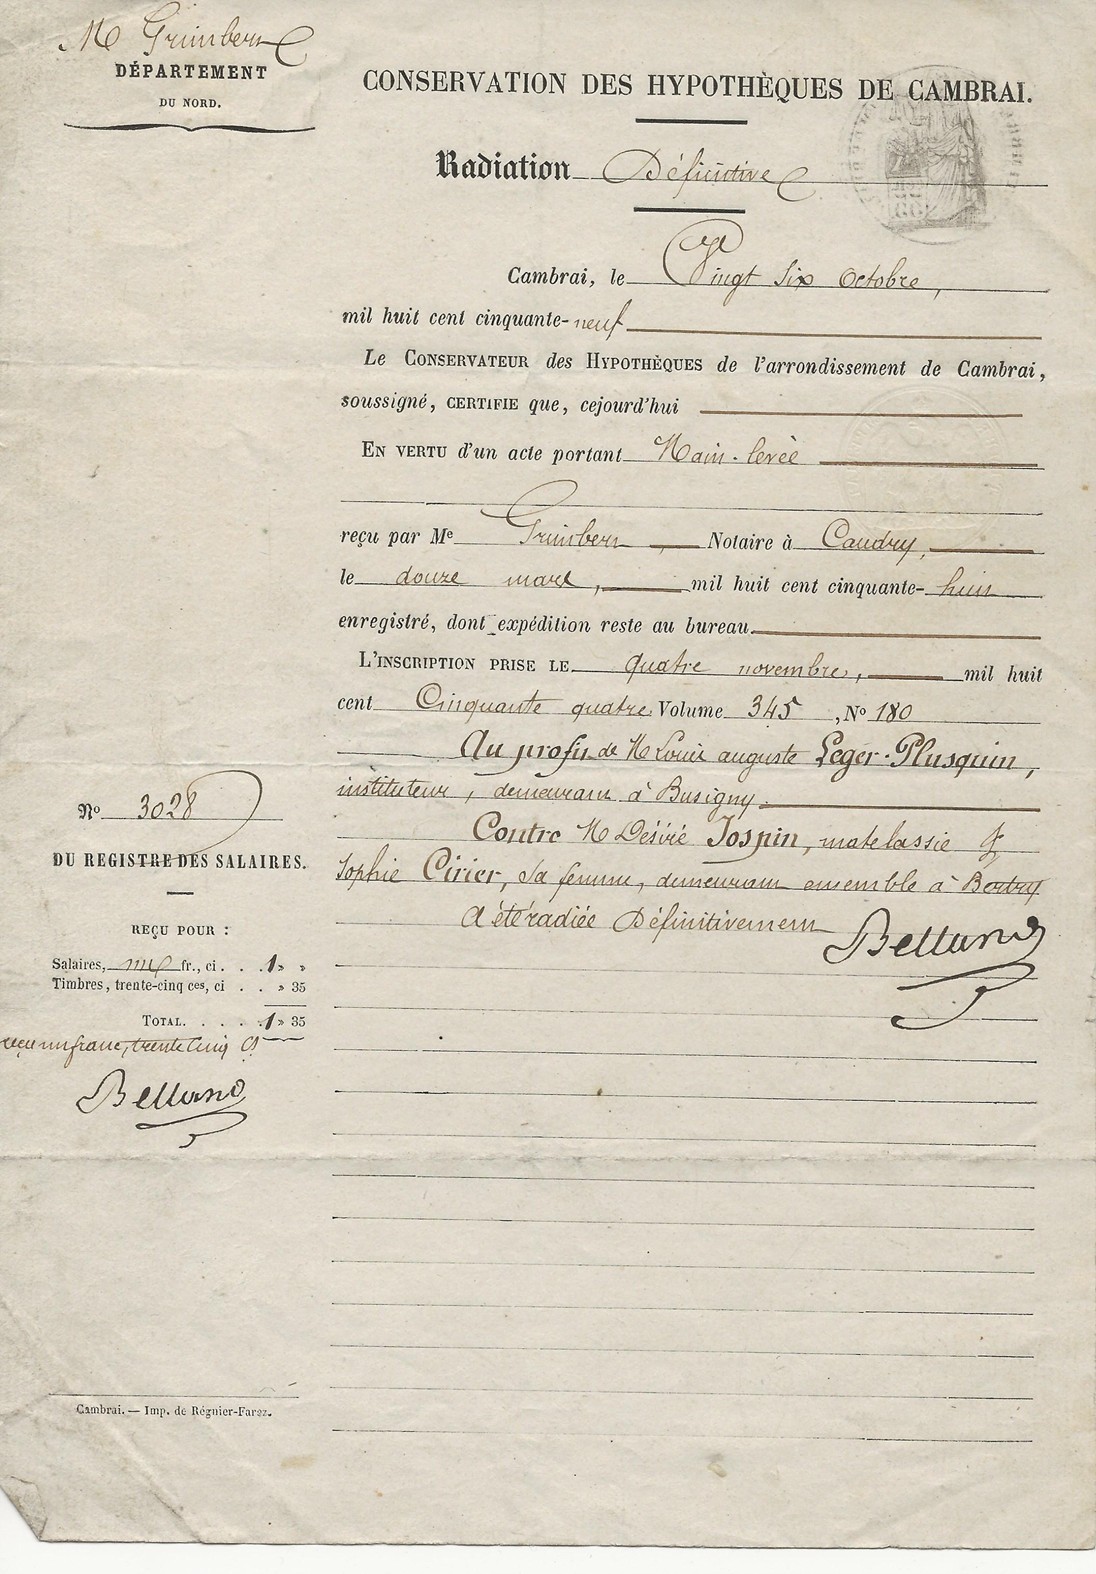 M Grimbert
DÉPARTEMENT
DU NORD.
CONSERVATION DES HYPOTHÈQUES DE CAMBRAI.
Radiation Définitive
Cambrai, le Vingt Six Octobre,
mil huit cent cinquante- neuf
Le CONSERVATEUR des HYPOTHÈQUES de l'arrondissement de Cambrai,
soussigné, CERTIFIE que, cejourd'hui
EN VERTU d'un acte portant Main-levée
reçu par Me Grimbert, Notaire à Caudry,
le douze mars, mil huit cent cinquante- huit
enregistré, dont expédition reste au bureau.
L'INSCRIPTION PRISE LE quatre novembre, mil huit
cent Cinquante quatre Volume 345, No 180
Au profit de M Louis auguste Leger-Plusquin,
instituteur, demeurant à Busigny.
Contre M Désiré Jospin, matelassié &
Sophie Cirier, sa femme, demeurant ensemble à Bertry
A été radiée Définitivement
No 3028
DU REGISTRE DES SALAIRES.
REÇU POUR :
Salaires, un fr., ci . . . 1 » »
Timbres, trente-cinq ces, ci . . » 35
TOTAL. . . . . 1 » 35
reçu un franc, trente cinq Cs
Cambrai. — Imp. de Régnier-Farez.